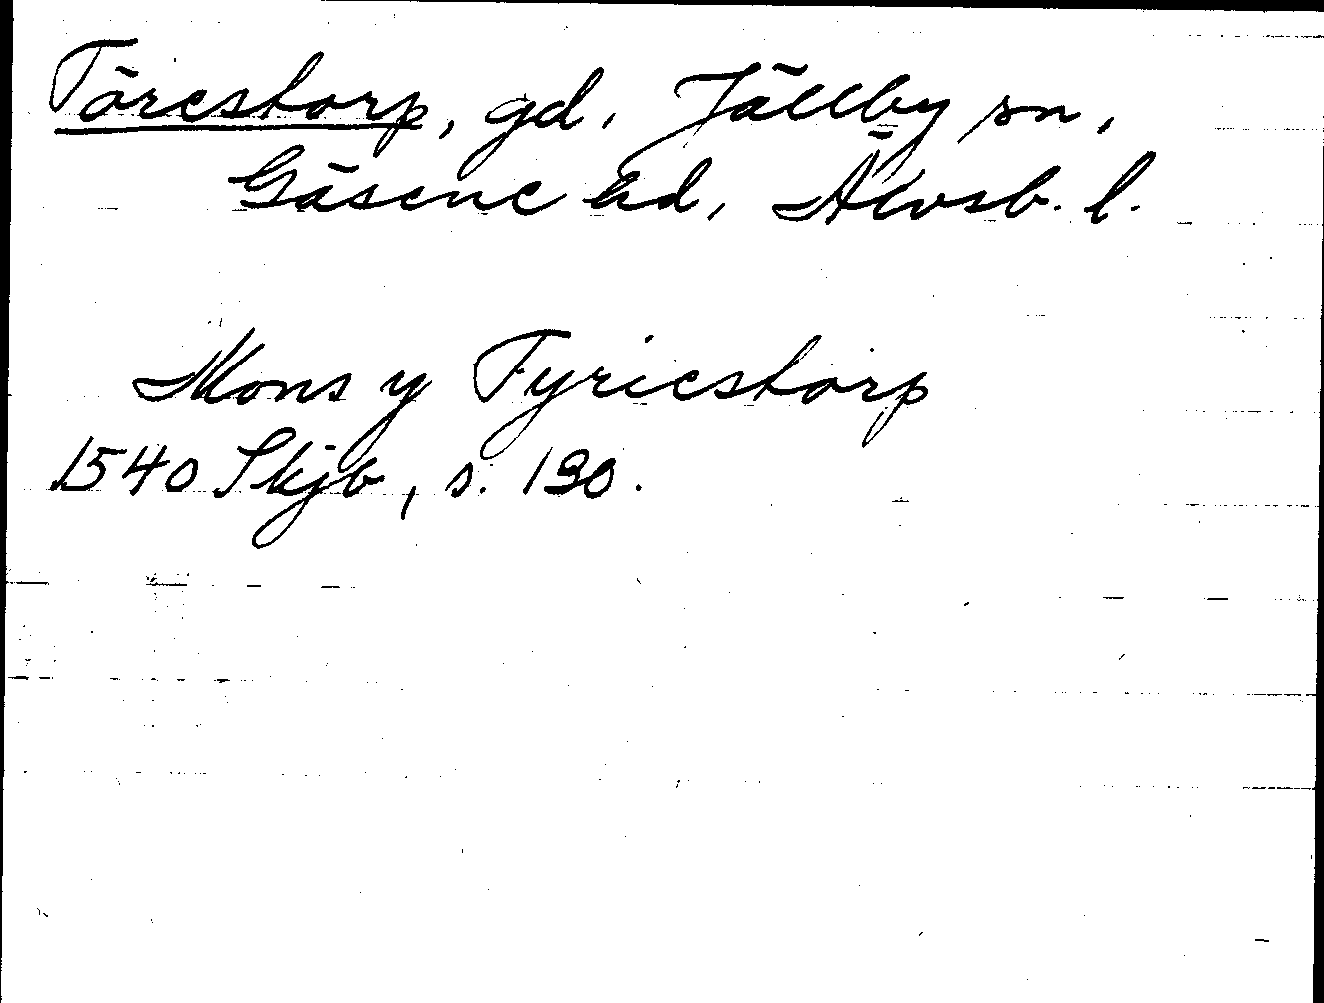 Törestorp, gd, Jällby sn,
Gäsene hd, Älvsb. l.
Mons y Tyriestorp
1540 Skjb, s. 130.